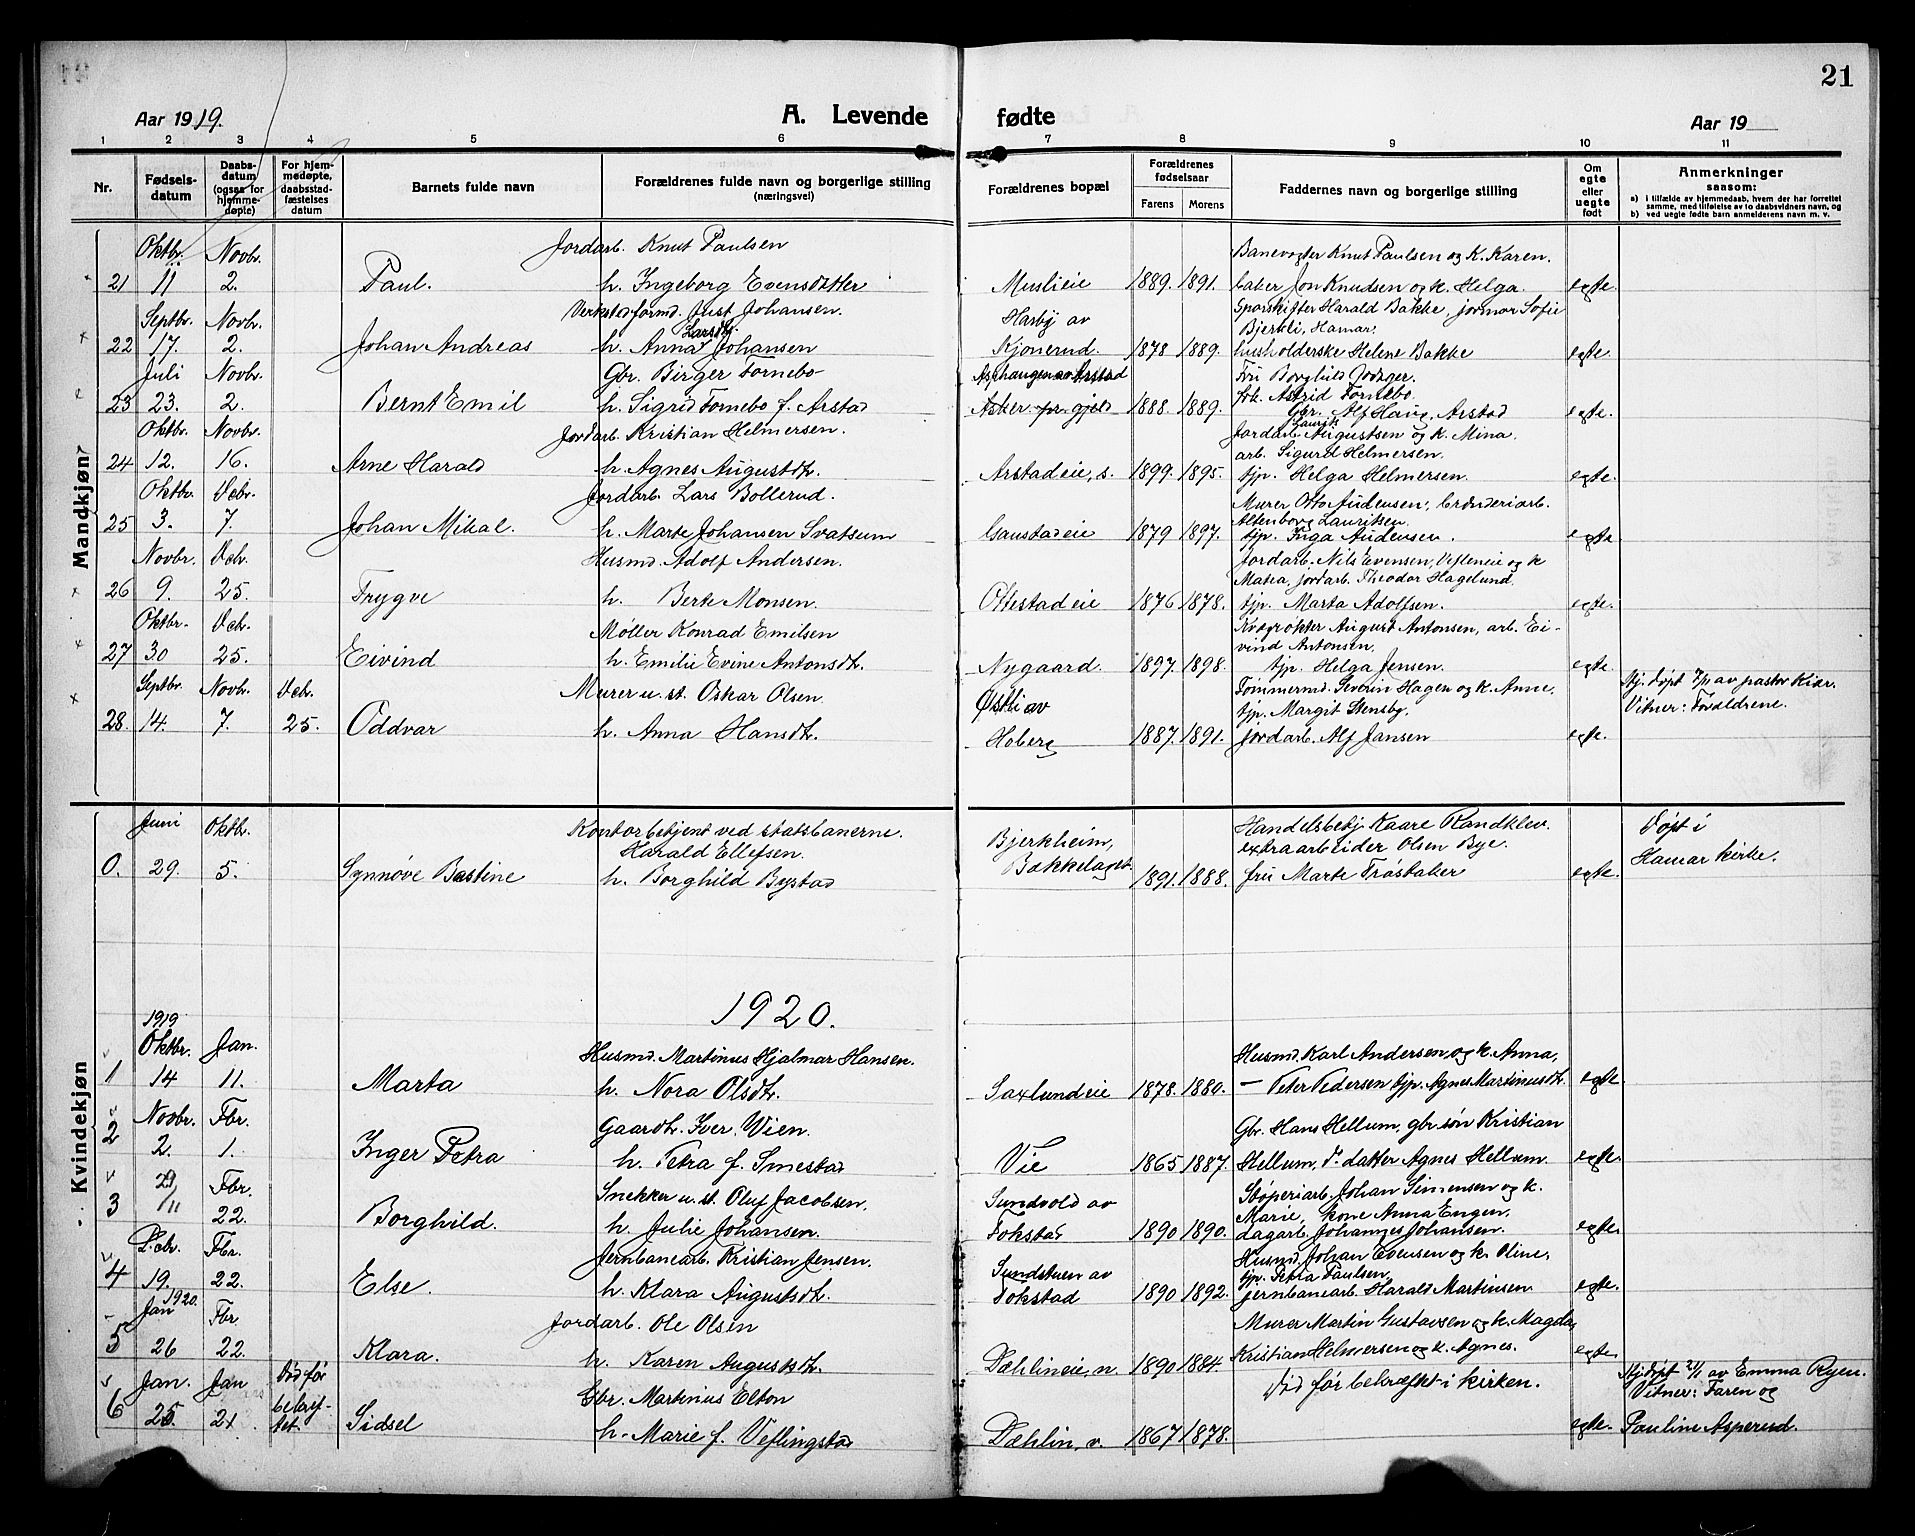 21
Aar 1919.
A. Levende fødte
Aar 19
1 2 3 4 5 6 7 8 9 10 11
Nr.
Fødsels-
datum
Daabs-
datum
(ogsaa for
hjemme-
døpte)
For hjem-
medøpte,
daabsstad-
fæstelses
datum
Barnets fulde navn
Forældrenes fulde navn og borgerlige stilling
(næringsvei)
Forældrenes bopæl
Forældrenes
fødselsaar
Farens Morens
Faddernes navn og borgerlige stilling
Om
egte
eller
uegte
født
Anmerkninger
saasom:
a) i tilfælde av hjemmedaab, hvem der har forrettet
samme, med tilføielse av to daabsvidners navn, og
b) ved uegte fødte barn anmelderens navn m. v.
Mandkjøn
Oktbr. Novbr. Jordarb. Knut Paulsen Banevogter Knut Paulsen og K. Karen.
21 11 2. Paul. h. Ingeborg Evensdatter Muslieie 1889. 1891. baker Jon Knudsen og k. Helga. egte.
Septbr. Novbr. Verkstedformd. Just Johansen. Hasby av Sporskifter Harald Bakke, jormor Sofie
Larsdtr. Bjerkli, Hamar.
22 17. 2. Johan Andreas h. Anna Johansen Kjonerud. 1878 1889. husholderske Helene Bakke egte.
Juli Novbr. Gbr. Birger Fornebo Arstad Fru Borghild
frk. Astrid Fornebo
23 23. 2. Bernt Emil h. Sigrid Fornebo f. Arstad Asker pr. gjeld 1888. 1889. Gbr. Alf Haug, Arstad egte.
Oktbr. Novbr. Jordarb. Kristian Helmersen. Jordarb. Laurits Augustsen og k. Mina.
arb. Sigurd Helmersen.
24 12. 16. Arne Harald h. Agnes Augustdtr. Arstadeie, s. 1899. 1895. tjp. Helga Helmersen. egte.
Oktbr. Dcbr. Jordarb. Lars Bollerud. Murer Otto Audensen, brønderiarb.
Altenborg Lauritsen.
25 3. 7. Johan Mikal. h. Marte Johansen Svatsum Gaustadeie 1879 1897. tjp. Inga Audensen. egte
Novbr. Dcbr. Husmd. Adolf Andersen. Jordarb. Nils Evensen, Vefleneie og k
Matea, jordarb. Theodor Hagelund.
26 9. 25. Trygve h. Berte Monsen. Ottestadeie 1876 1878. tjp. Marta Adolfsen. egte.
Oktbr. Dcbr. Møller Konrad Emilsen Kvægrøkter August Antonsen, arb. Ei-
vind Antonsen.
27 30 25. Eivind h. Emilie Evine Antonsdtr. Nygaard. 1897. 1898. tjp. Helga Jensen. egte.
Septbr. Novbr. Dcbr. Murer u. st. Oskar Olsen. Østli av Tømmermd. Severin Hagen og k. Anne, Hj. døpt 7/11 av pastor Kiær.
tjp. Margit Stensby. Vitner: Forældrene.
28. 14. 7. 25. Oddvar h. Anna Hansdtr. Hoberg 1887. 1891. jordarb. Alf Jansen egte.
Kvindekjøn
Juni Oktbr. Kontorbetjent ved statsbanerne. Bjerkheim, Handelsbetj. Kaare Randklev. Døpt i
Harald Ellefsen. Bakkelaget. extraarbeider Olsen Bye. Hamar kirke.
0. 29. 5. Synnøve Bastine h. Borghild Bystad 1891. 1888. fru Marte Frøstaker egte.
1920.
1919
Oktbr. Jan. Husmd. Martinus Hjalmar Hansen. Husmd. Karl Andersen og k. Anna,
1 14 11. Marta h. Nora Olsdtr. Saxlundeie 1878. 1880. — Peter Pedersen tjp. Agnes Martinusdtr. egte
Novbr. Fbr. Gaardbr. Iver Vien. Gbr. Hans Hellum, gbr.søn Kristian
2 2. 1. Inger Petra h. Petra f. Smestad Vie 1865 1887. Hellum, d. datter Agnes Hellum. egte.
29/11 Fbr. Snekker u. st. Oluf Jacobsen. Sundvold av Støperiarb. Johan Simensen og k.
Marie, kone Anna Engen,
3 22. Borghild. h. Julie Johansen. Tokstad 1890 1890. dagarb. Johannes Johansen. egte.
Dcbr. Fbr. Jernbanearb. Kristian Jensen. Sundstuen av Husmd. Johan Evensen og k. Oline,
tjp. Petra Paulsen,
4 19. 22. Else. h. Klara Augustsdtr. Tokstad 1890 1892. jernbanearb. Harald Martinsen egte.
Jan 1920. Fbr. Jordarb. Ole Olsen Murer Martin Gustavsen og k. Magda,
5 26 22. Klara. h. Karen Augustsdtr. Dæhlineie, n. 1890 1884. Kristian Helmersen og k. Agnes. egte.
Jan. Jan Død før Gbr. Martinius Elton Død før bekræftet i kirken. Hj. døpt 21/1 av Emma Ryen.
bekræf- Vitner: Faren og
6 25. 21 tet. Sidsel h. Marie f. Veflingstad Dæhlin, v. 1867 1878. egte. Pauline Asperud.